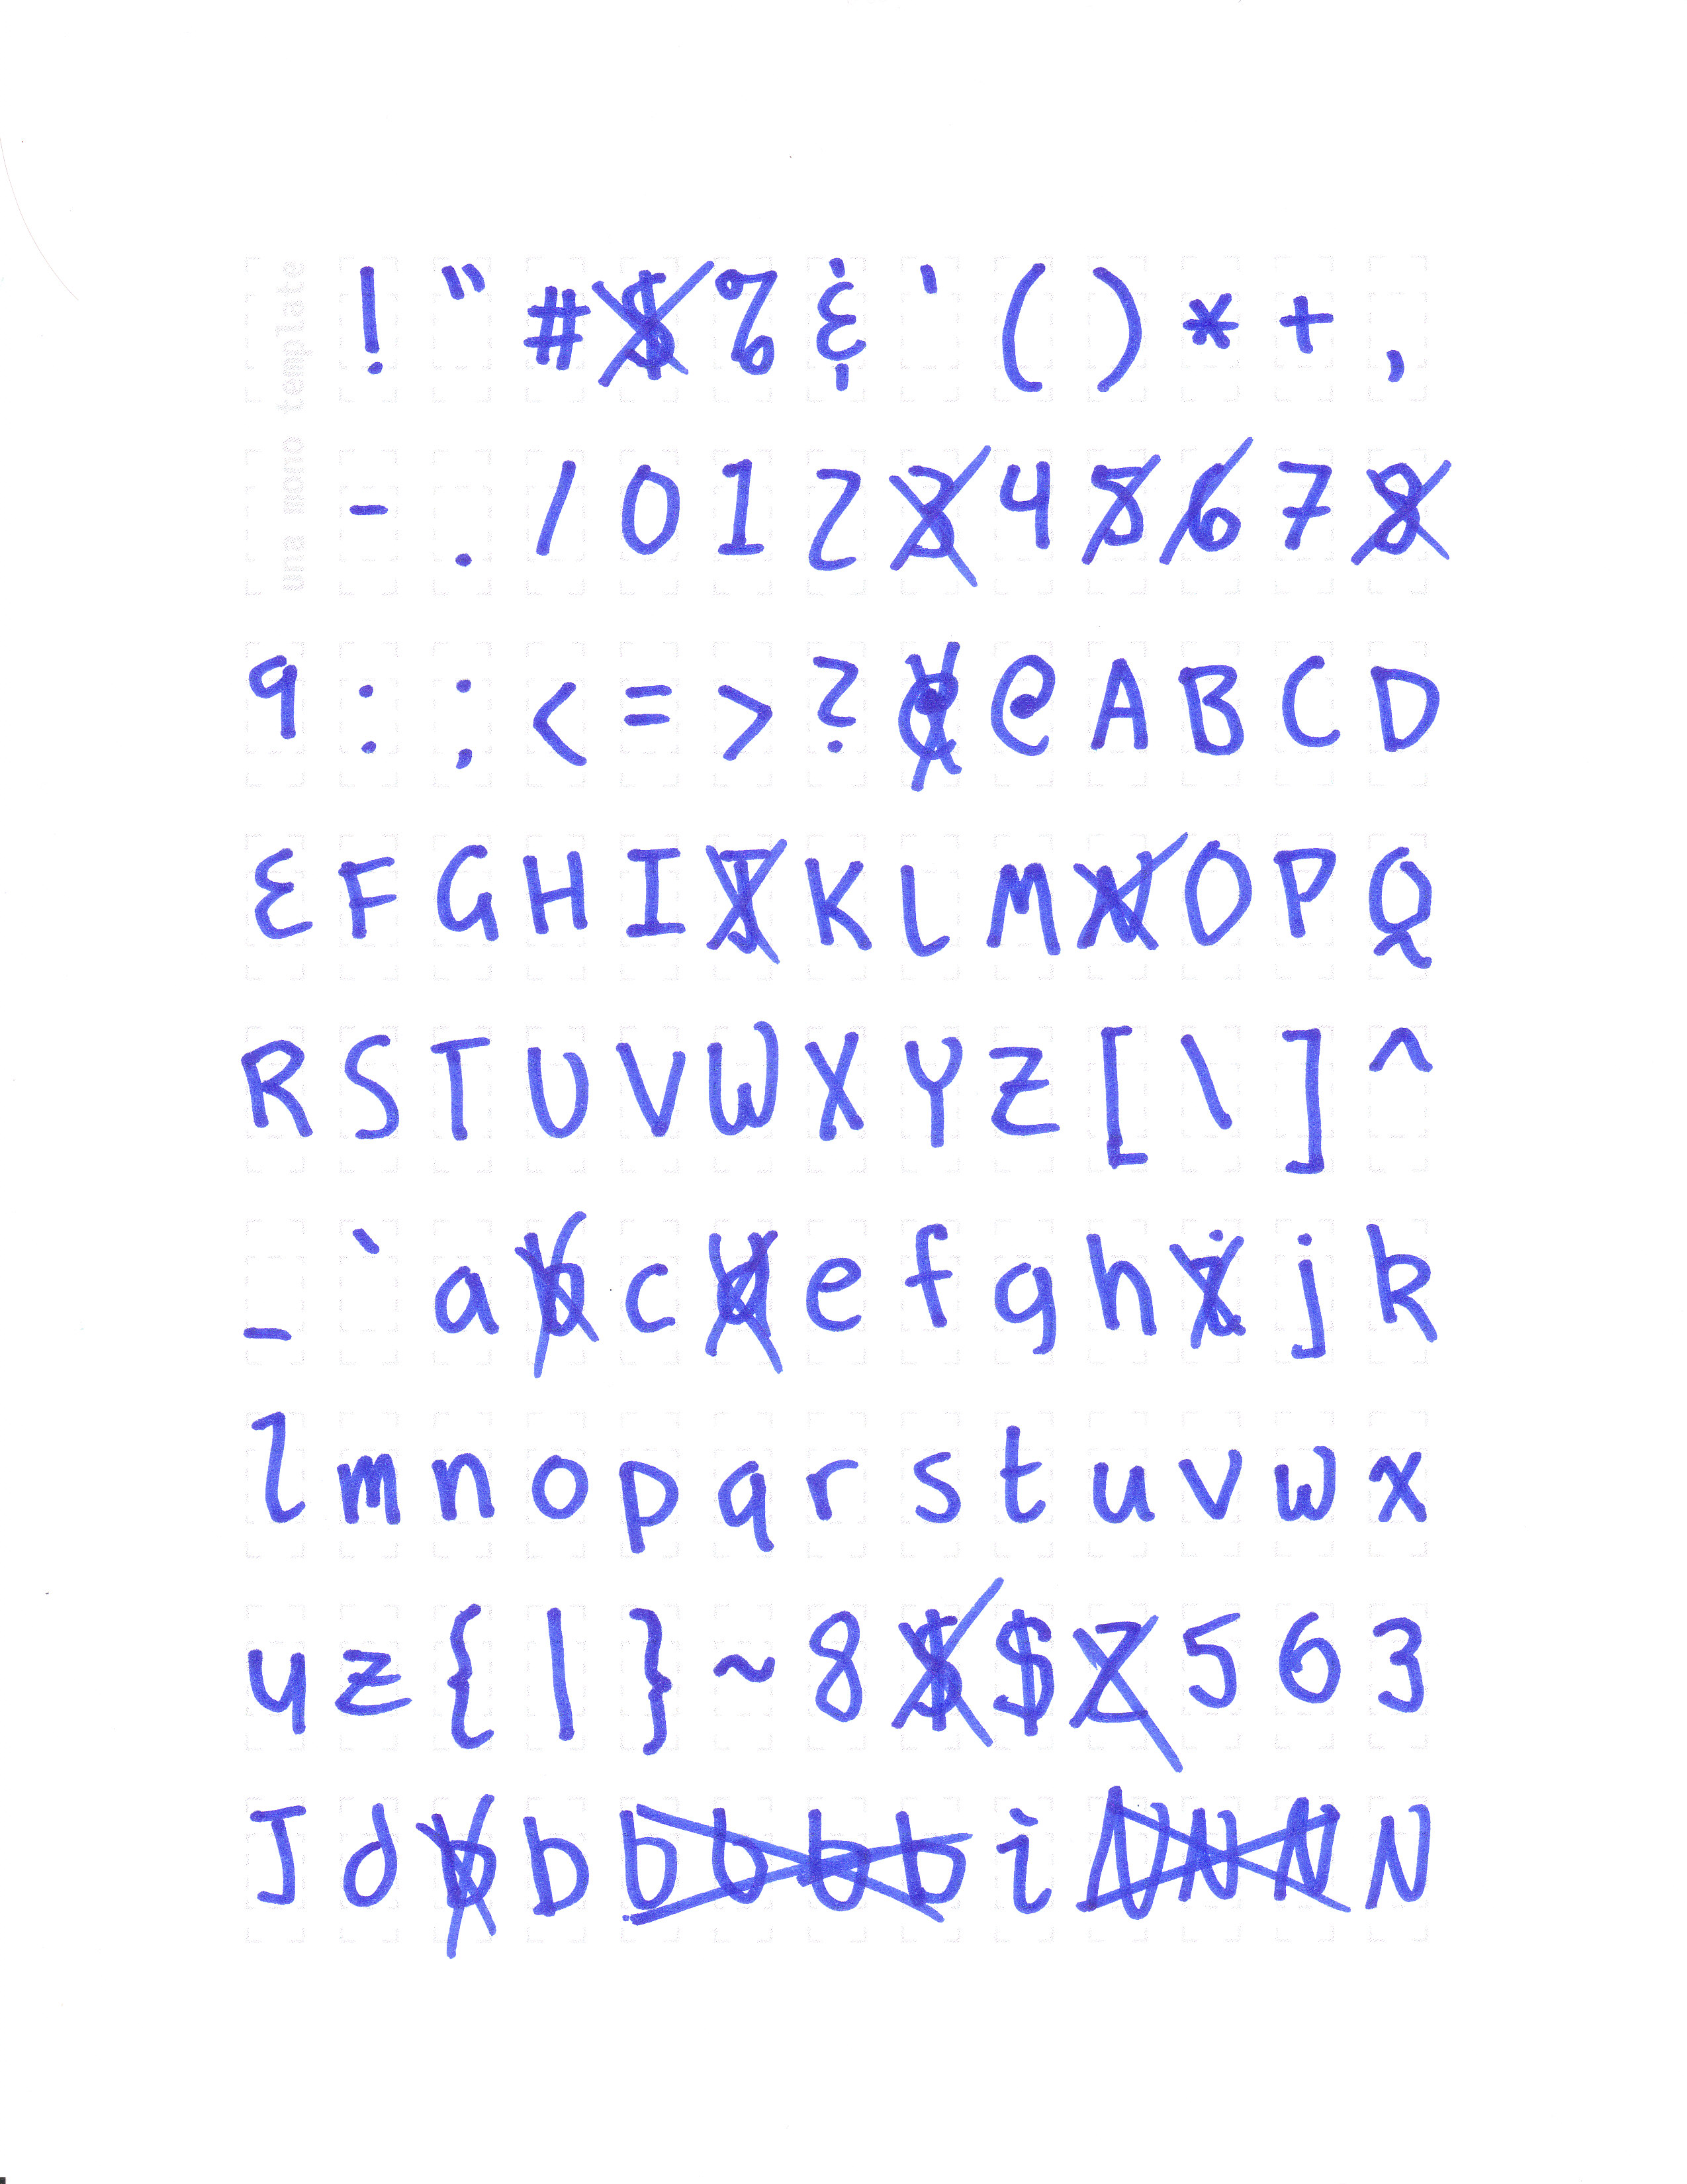 una mono template
! " # $ % & ' ( ) * + ,
- . / 0 1 2 3 4 5 6 7 8
9 : ; < = > ? @ @ A B C D
E F G H I J K L M N O P Q
R S T U V W X Y Z [ \ ] ^
_ ` a b c d e f g h i j k
l m n o p q r s t u v w x
y z { | } ~ 8 $ $ Z 5 6 3
J d b b b b b b i N N N N